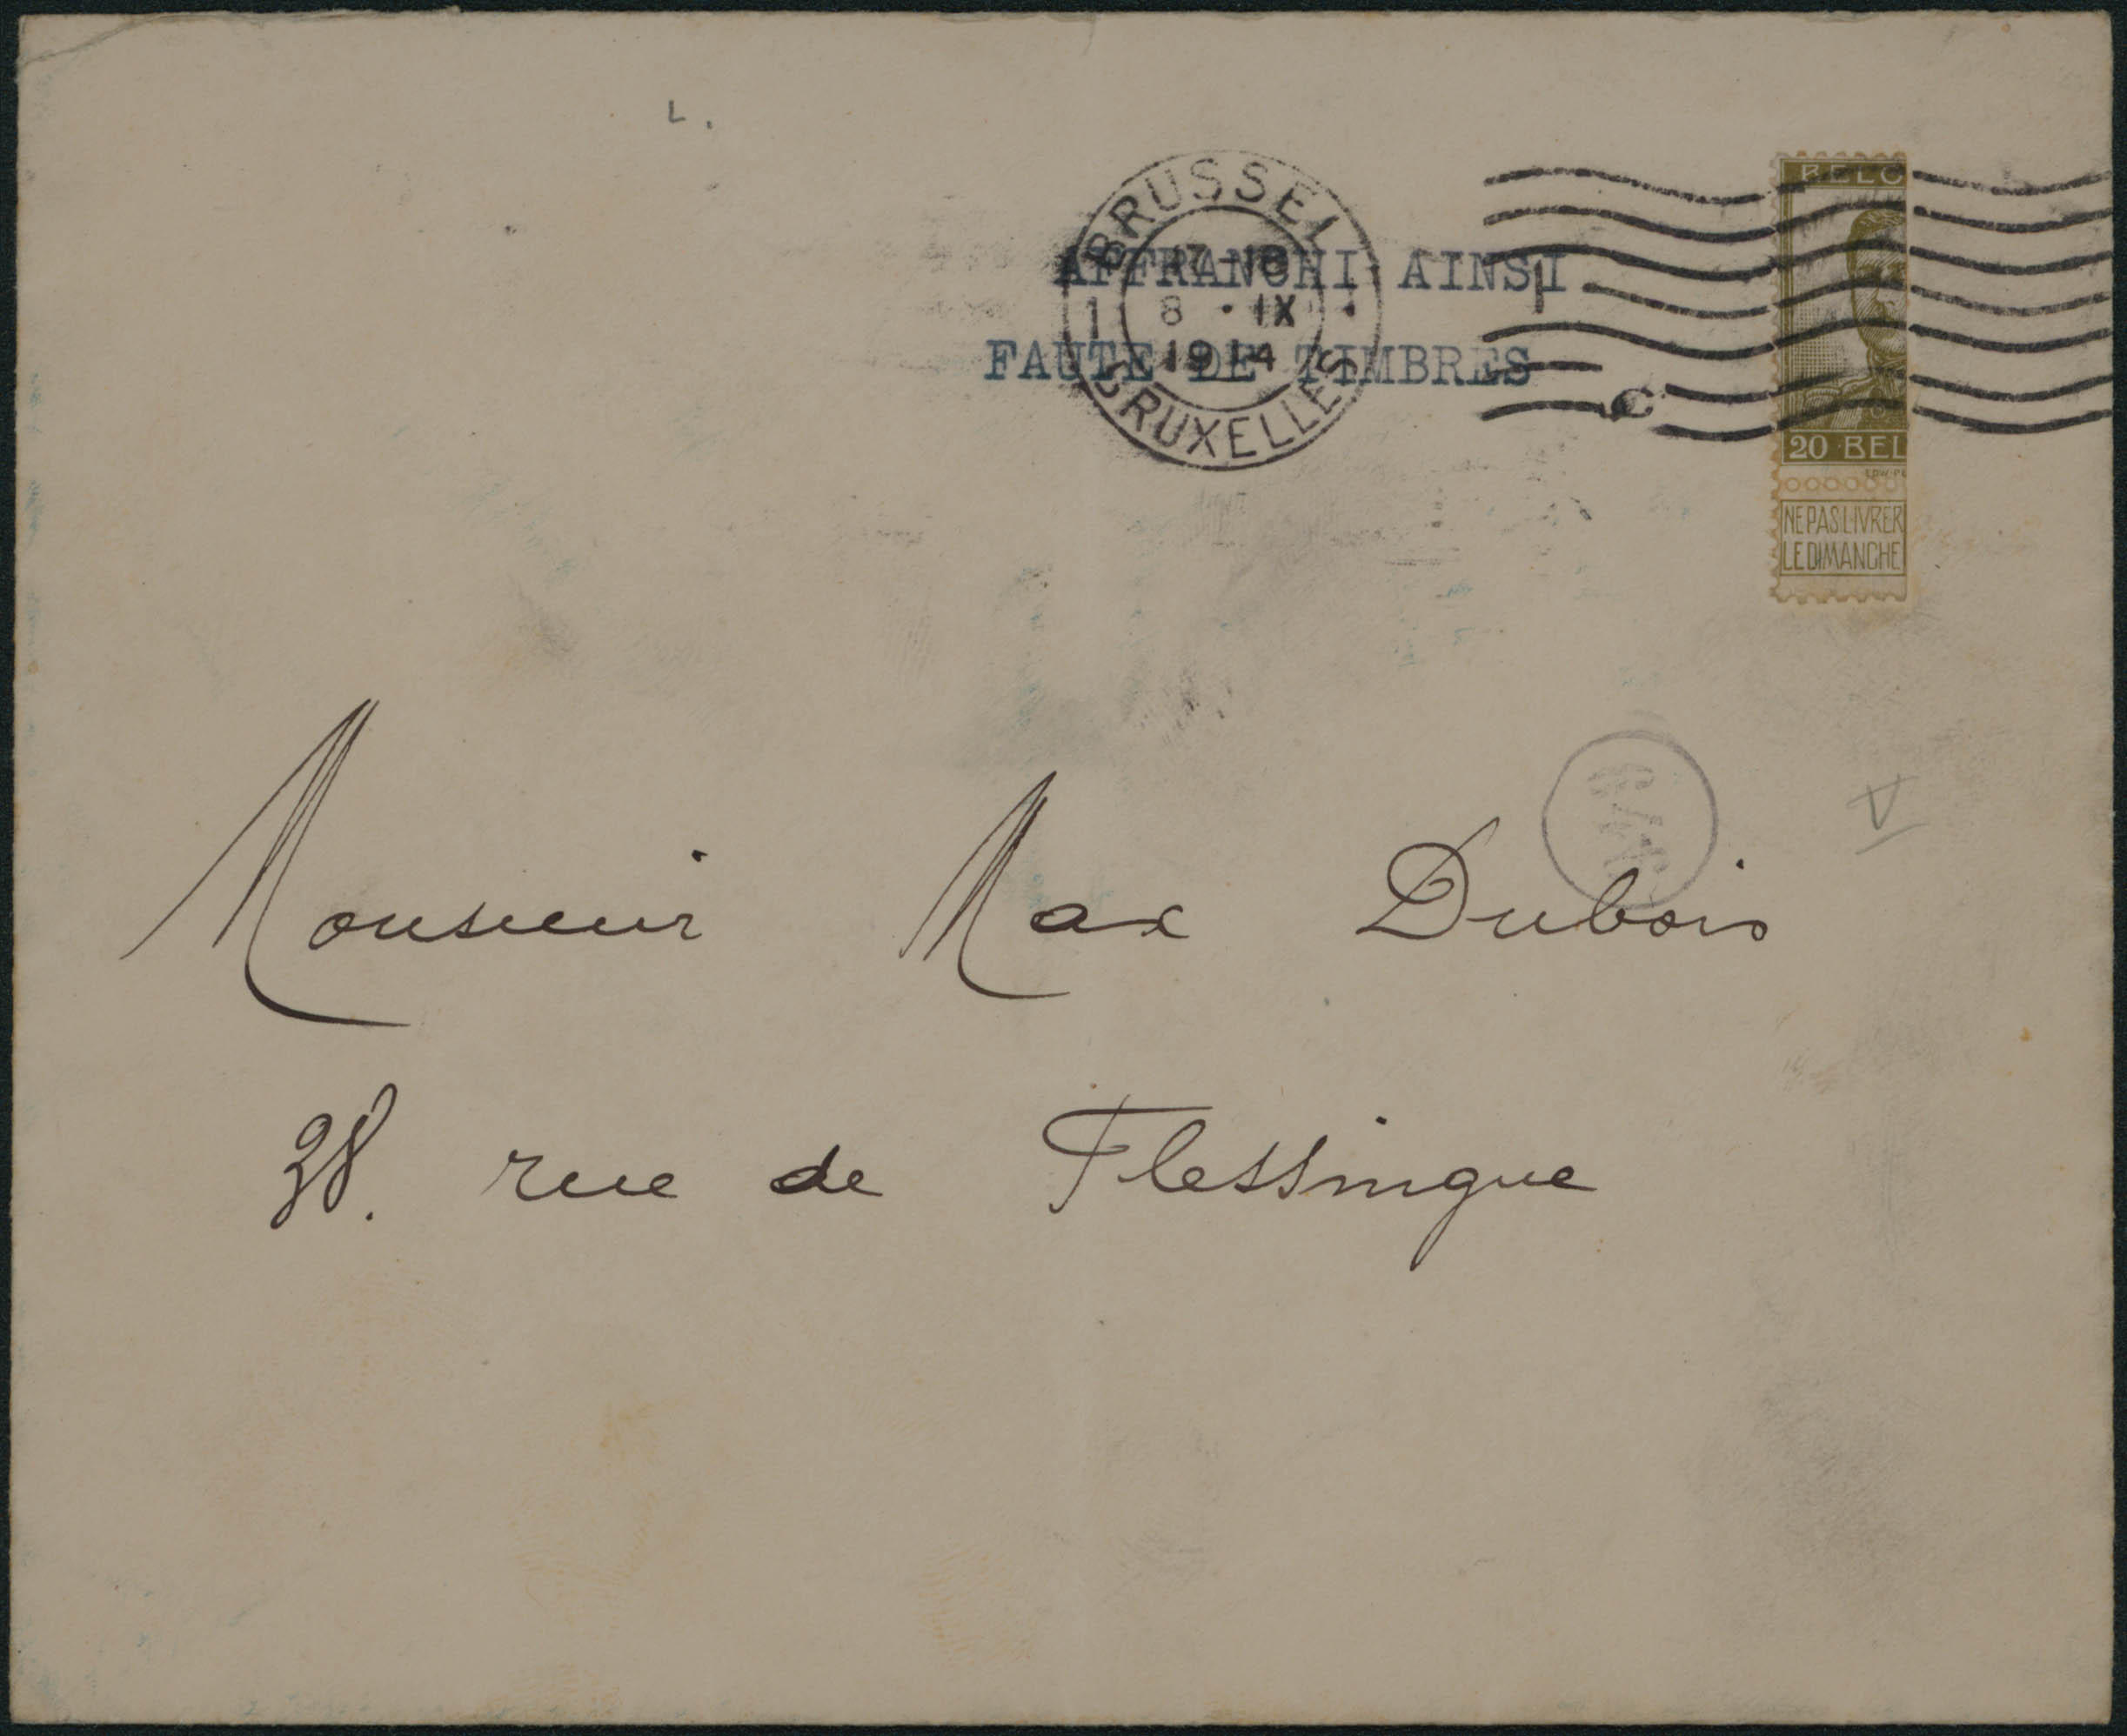 L.
BRUSSEL
17-18
1 8 · IX
1914
BRUXELLES
AFFRANCHI AINSI
FAUTE DE TIMBRES
BELG
20 BEL
NE PAS LIVRER
LE DIMANCHE
V
Monsieur Max Dubois
38. rue de Flessingue